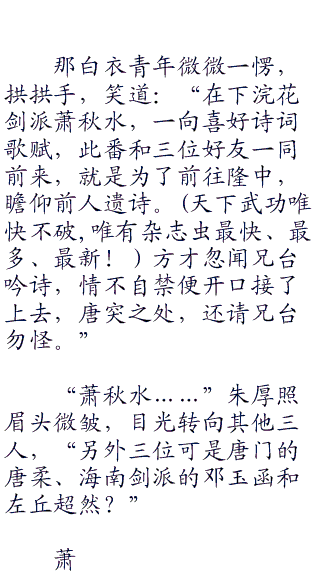 那白衣青年微微一愣，
拱拱手，笑道：“在下浣花
剑派萧秋水，一向喜好诗词
歌赋，此番和三位好友一同
前来，就是为了前往隆中，
瞻仰前人遗诗。(天下武功唯
快不破,唯有杂志虫最快、最
多、最新！ ) 方才忽闻兄台
吟诗，情不自禁便开口接了
上去，唐突之处，还请兄台
勿怪。”
“萧秋水……”朱厚照
眉头微皱，目光转向其他三
人，“另外三位可是唐门的
唐柔、海南剑派的邓玉函和
左丘超然？”
萧